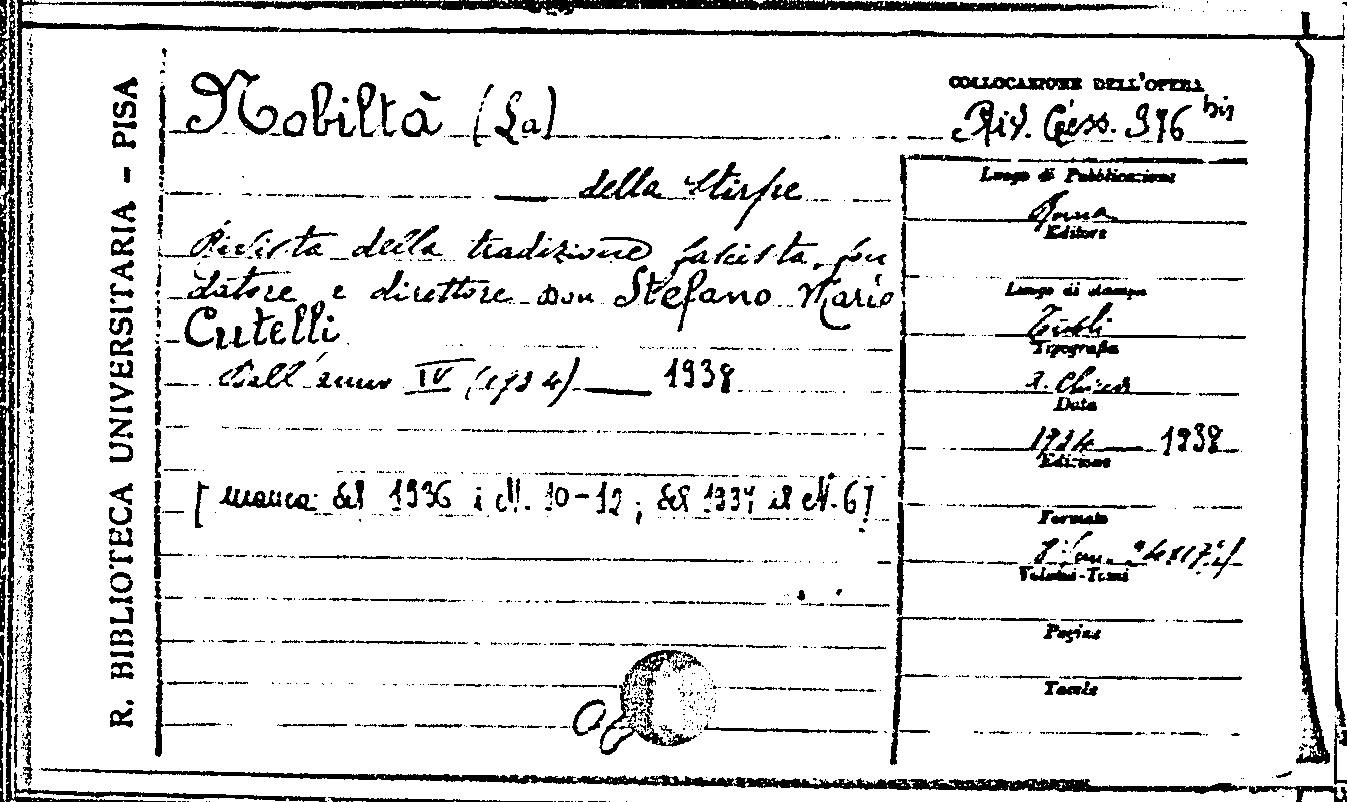 R. BIBLIOTECA UNIVERSITARIA – PISA
Nobiltà (La)
della Stirpe
Rivista della tradizione fascista, fon
datore e direttore Don Stefano Mario
Cutelli
Dall'anno IV (1934) — 1938
[manca del 1936 i N. 10-12; del 1937 il N. 6]
COLLOCAZIONE DELL'OPERA
Riv. Cess. 376 bis
Luogo di Pubblicazione
Roma
Editore
Luogo di stampa
Tivoli
Tipografia
A. Chicca
Data
1934 — 1938
Edizione
Formato
Volumi-Tomi
Pagine
Tavole